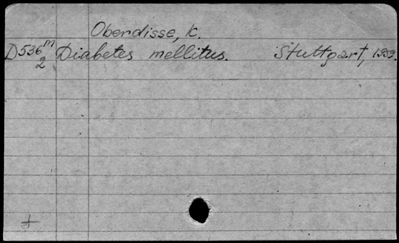 Oberdisse, K.
D536 m Diabetes mellitus. Stuttgart, 1959.
2
+